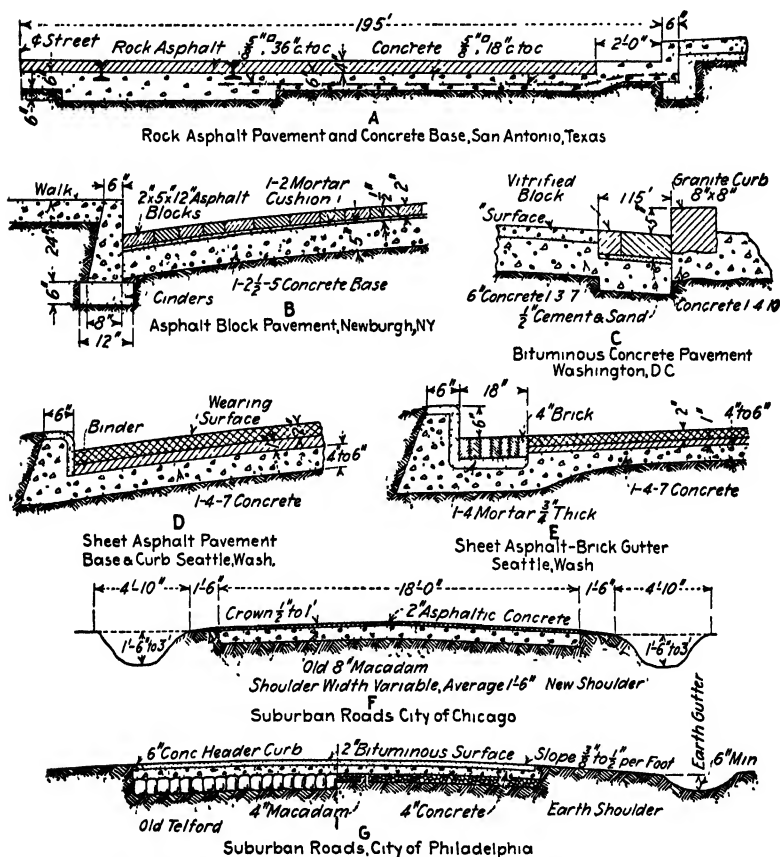 195'
6"
¢ Street
Rock Asphalt
5/8"□, 36" c. to c.
Concrete
5/8"□, 18" c. to c.
2'-0"
6"
6"
6"
4"
A
Rock Asphalt Pavement and Concrete Base, San Antonio, Texas
6"
Walk
2"x5"x12" Asphalt
Blocks
1-2 Mortar
Cushion
1/2"
2"
5"
24"
6"
8"
12"
Cinders
1-2 1/2-5 Concrete Base
B
Asphalt Block Pavement, Newburgh, N.Y.
Vitrified
Block
1 1.5'
Granite Curb
8"x8"
Surface
5"
6" Concrete 1 3 7
1/2" Cement & Sand
Concrete 1 4 10
C
Bituminous Concrete Pavement
Washington, D C
6"
Binder
Wearing
Surface
2"
4 to 6"
1-4-7 Concrete
D
Sheet Asphalt Pavement
Base & Curb Seattle, Wash.
6"
18"
4" Brick
6"
2"
1"
4" to 6"
1-4-7 Concrete
1-4 Mortar 3/4" Thick
E
Sheet Asphalt-Brick Gutter
Seattle, Wash
4'-10"
1'-6"
18'-0"
1'-6"
4'-10"
Crown 1/2" to 1'
2" Asphaltic Concrete
1'-6" to 3'
1'-6" to 3'
Old 8" Macadam
Shoulder Width Variable, Average 1'-6"
New Shoulder
F
Suburban Roads City of Chicago
6" Conc Header Curb
2" Bituminous Surface
Slope 3/8" to 1/2" per Foot
Earth Gutter
6" Min
Old Telford
4" Macadam
4" Concrete
Earth Shoulder
G
Suburban Roads, City of Philadelphia